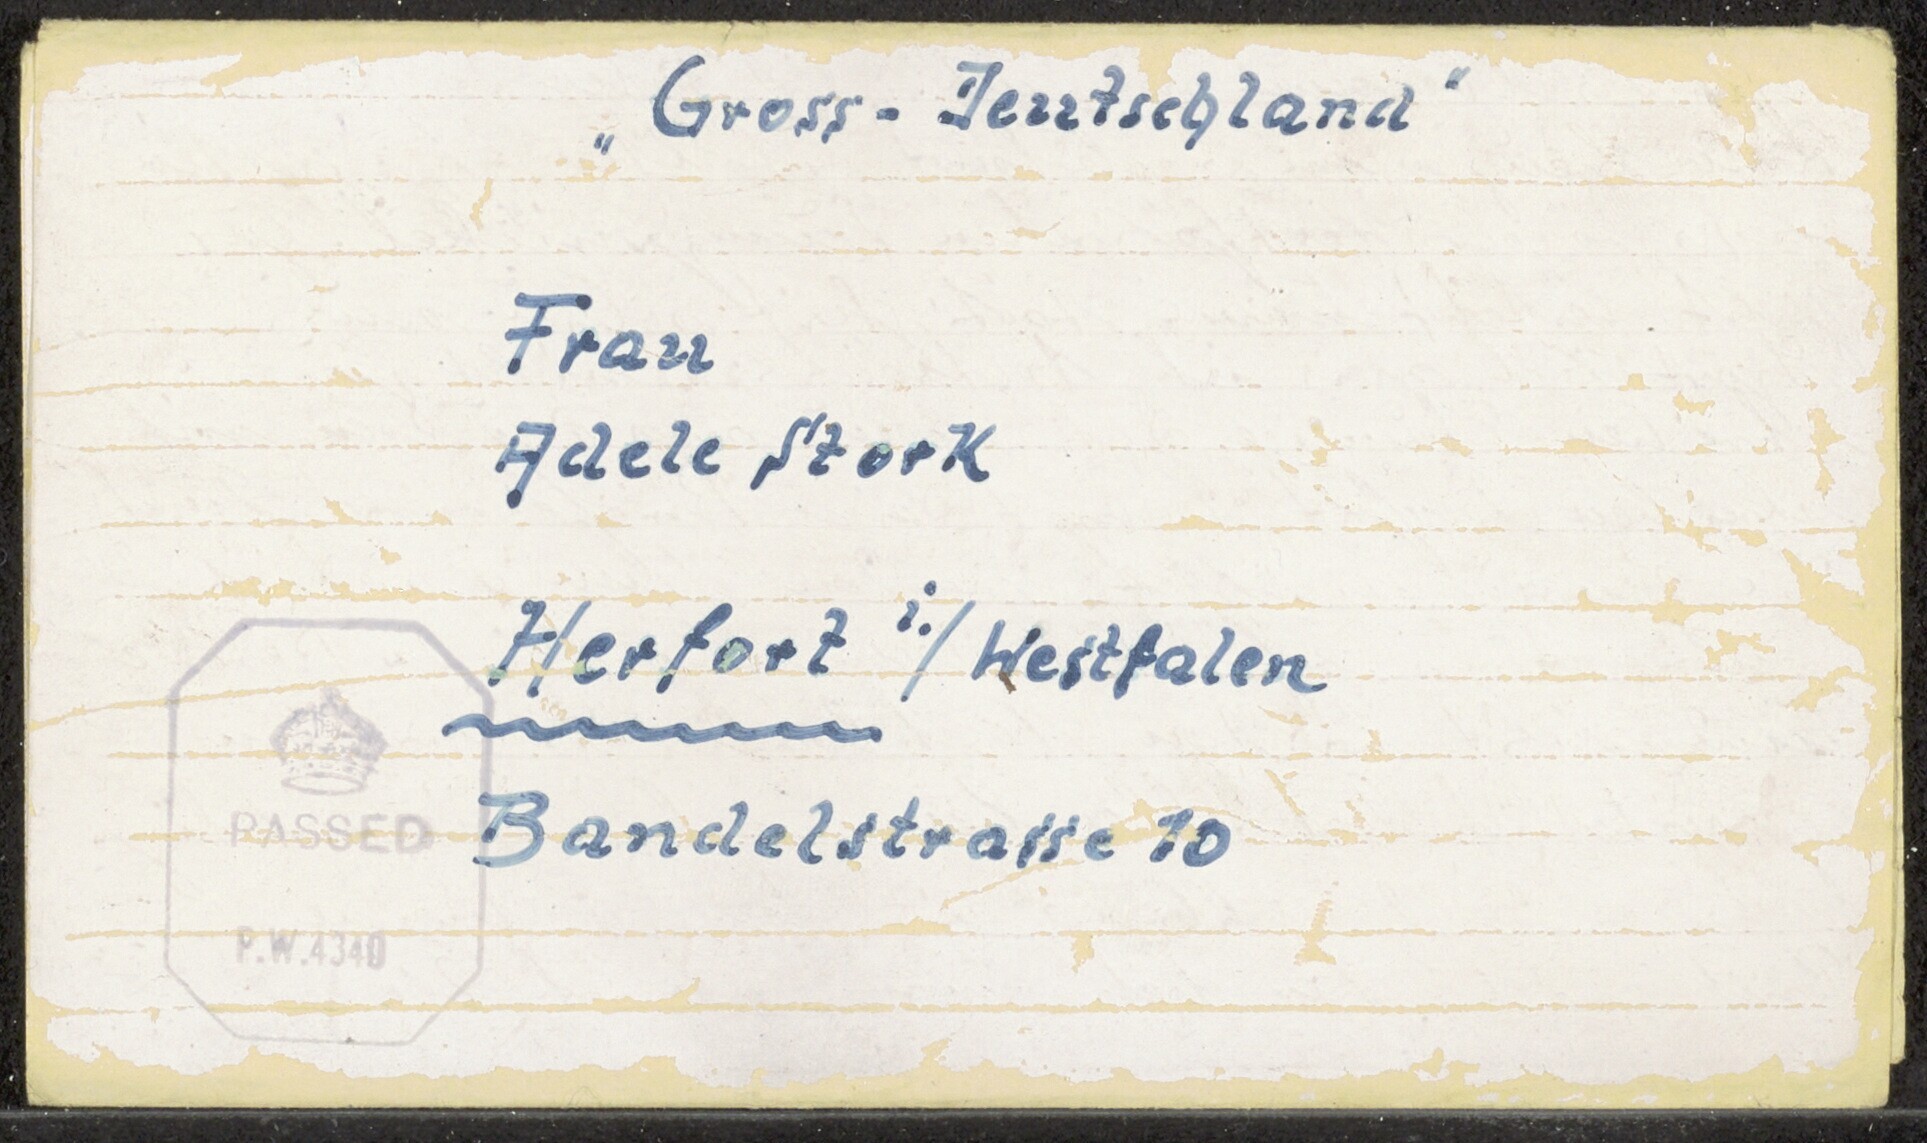 „Gross-Deutschland“
Frau
Adele Stork
Herfort i./Westfalen
Bandelstrasse 10
PASSED
P.W.4340